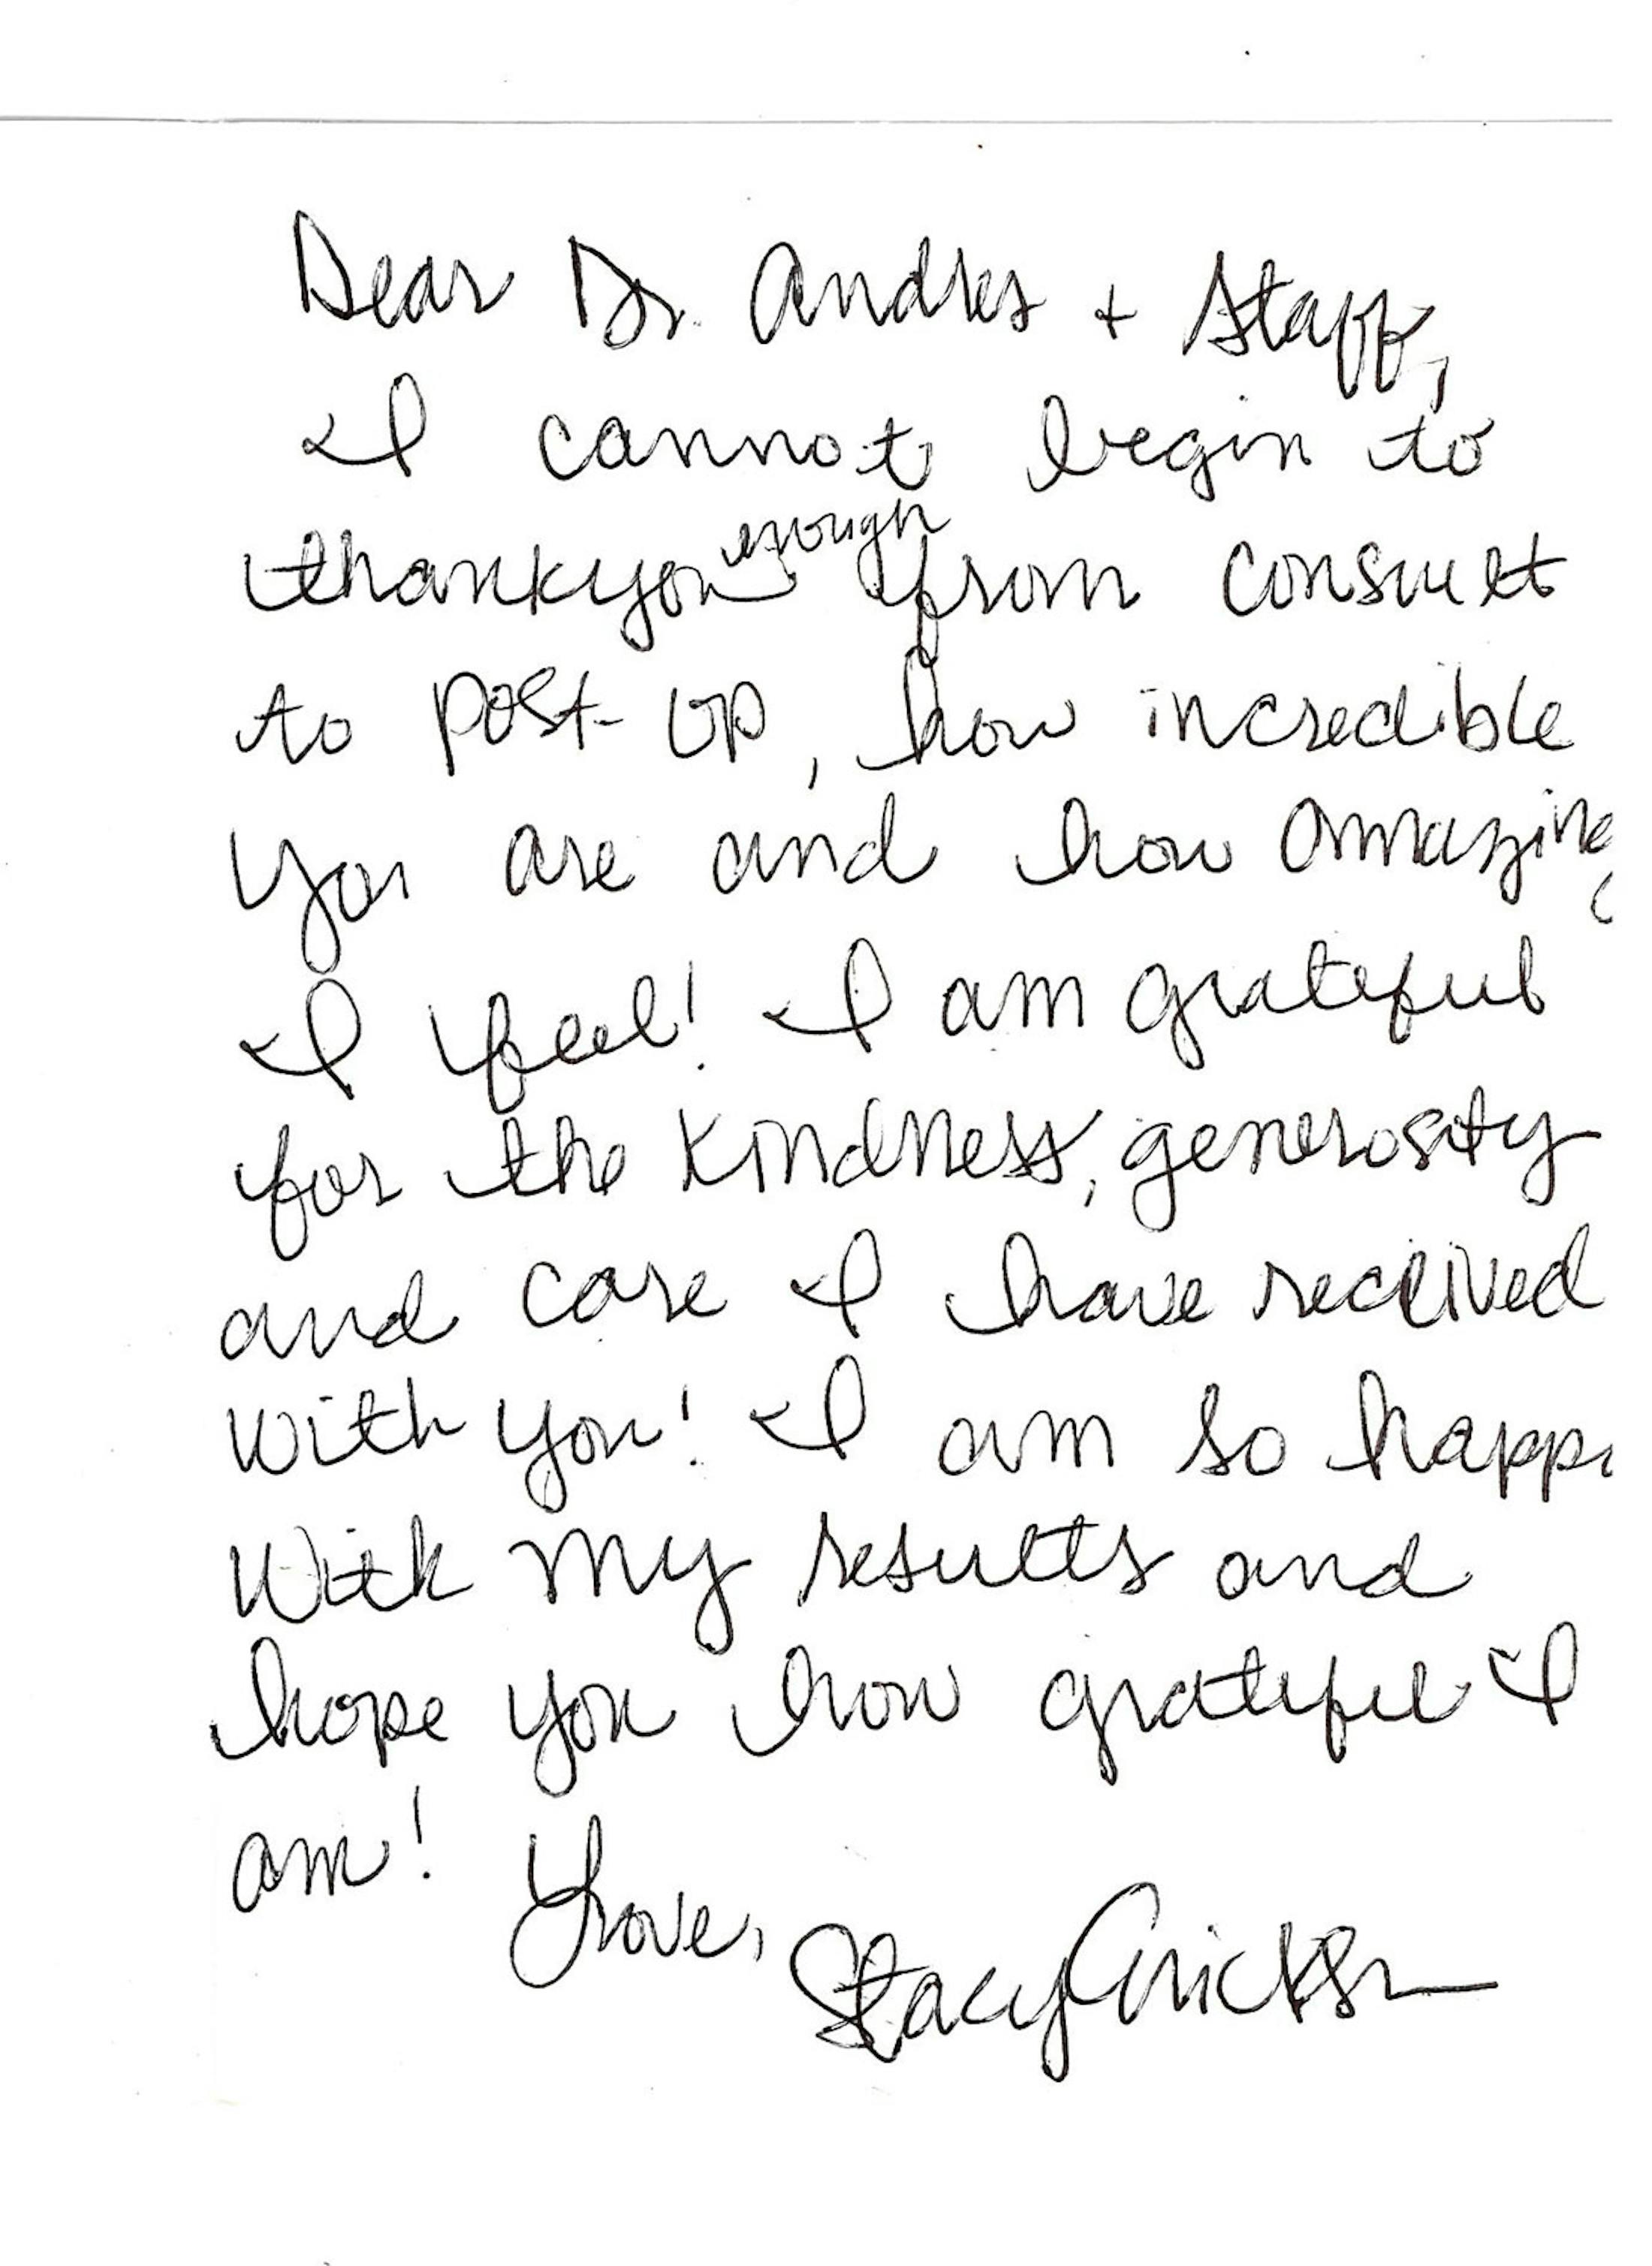 Dear Dr. Andres + Staff,
I cannot begin to
thankyou enough from consult
to post-op, how incredible
you are and how amazing
I feel! I am grateful
for the kindness, generosity
and care I have received
with you! I am so happy
with my results and
hope you how grateful I
am!
Love,
Stacy Erickson